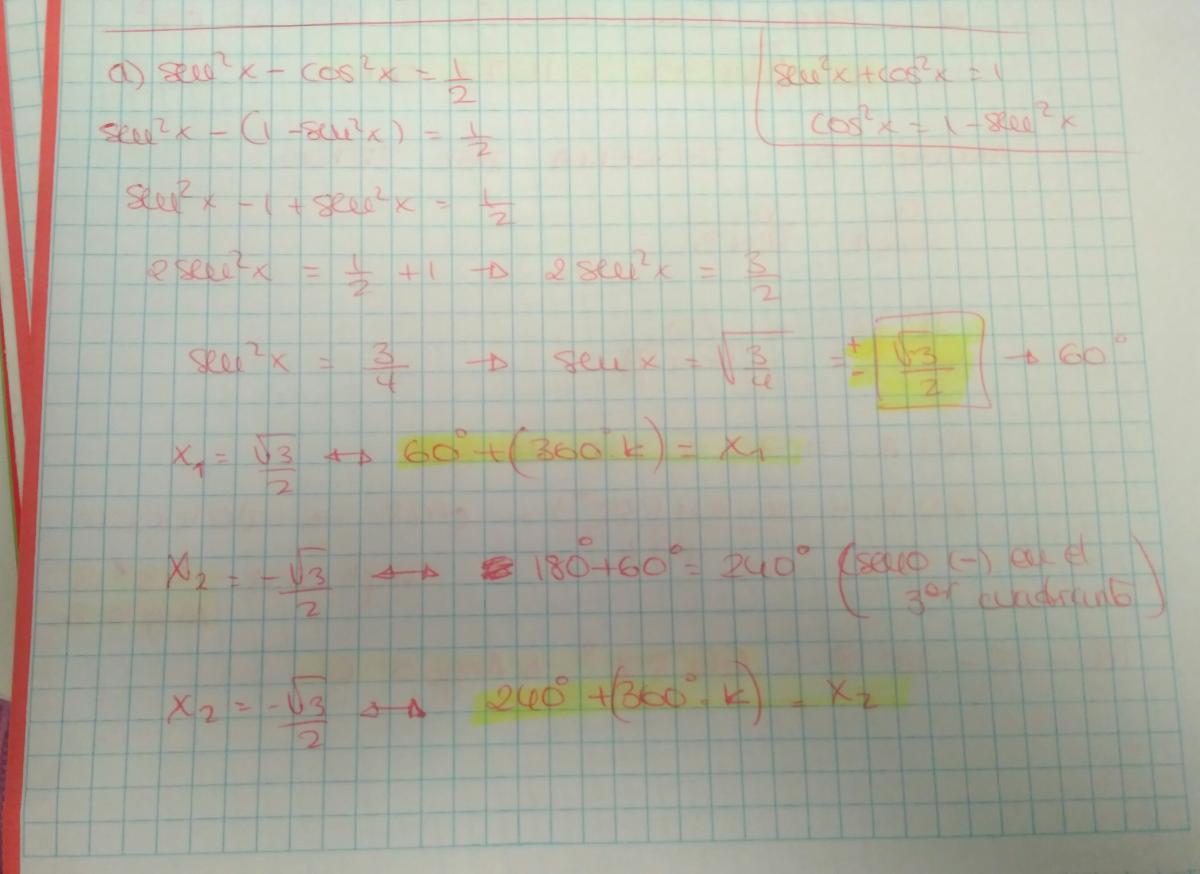 a) sen²x - cos²x = 1/2
sen²x + cos²x = 1
cos²x = 1 - sen²x
sen²x - (1 - sen²x) = 1/2
sen²x - 1 + sen²x = 1/2
2sen²x = 1/2 + 1 → 2sen²x = 3/2
sen²x = 3/4 → sen x = √(3/4) = ± √3/2 → 60°
x₁ = √3/2 ↔ 60° + (360°·k) = x₁
x₂ = -√3/2 ↔ 180° + 60° = 240° (seno (-) en el
3er cuadrante)
x₂ = -√3/2 ↔ 240° + (360°·k) = x₂